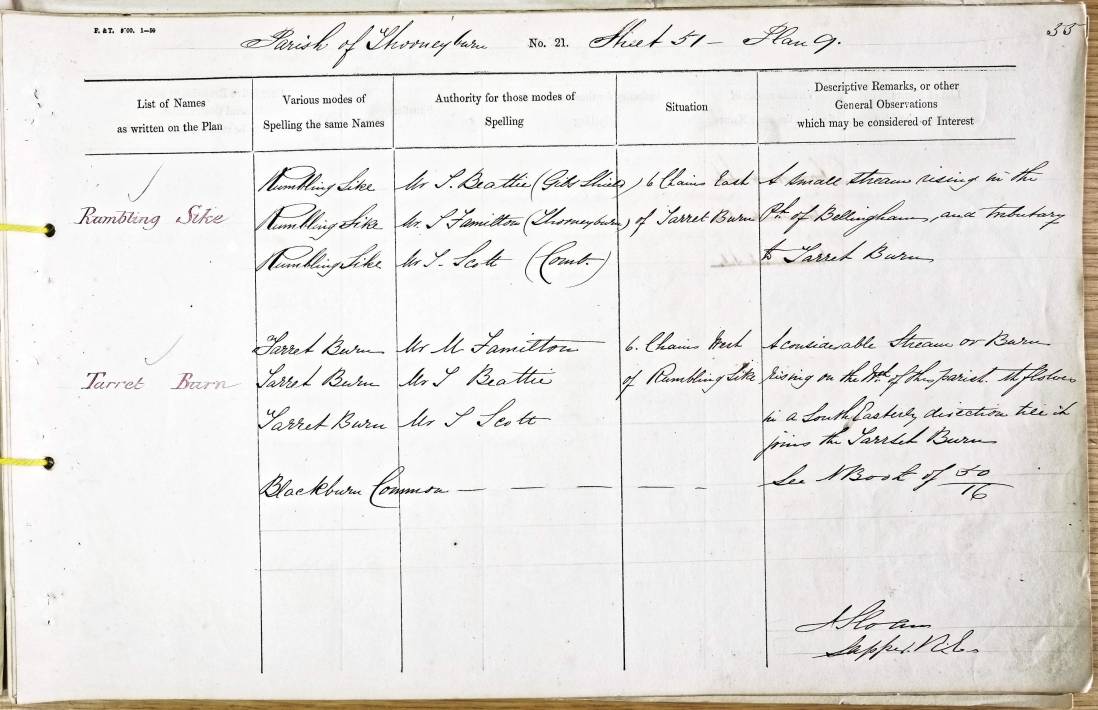 F. &T. 500. 1—59
Parish of Thorneyburn No. 21. Sheet 51 – Plan 9. 35
List of Names
as written on the Plan
Various modes of
Spelling the same Names
Authority for those modes of
Spelling
Situation
Descriptive Remarks, or other
General Observations
which may be considered of Interest
Rumbling Sike Mr T. Beattie (Gibs Shield) 6 Chains East A small stream rising in the
Rumbling Sike Rumbling Sike Mr. T Hamilton (Thorneyburn) of Tarret Burn Ph. of Bellingham, and tributary
Rumbling Sike Mr T. Scott (Comb.) to Tarret Burn
Tarret Burn Mr M Hamilton 6. Chains West A considerable Stream or Burn
Tarret Burn Tarret Burn Mr T Beattie of Rumbling Sike rising on the Nth. of this parish. It flows
Tarret Burn Mr T Scott in a South Easterly direction till it
joins the Tarrset Burn
Blackburn Common — — — — — — See N Book of 50/16
J Sloan
Sapper. R.E.